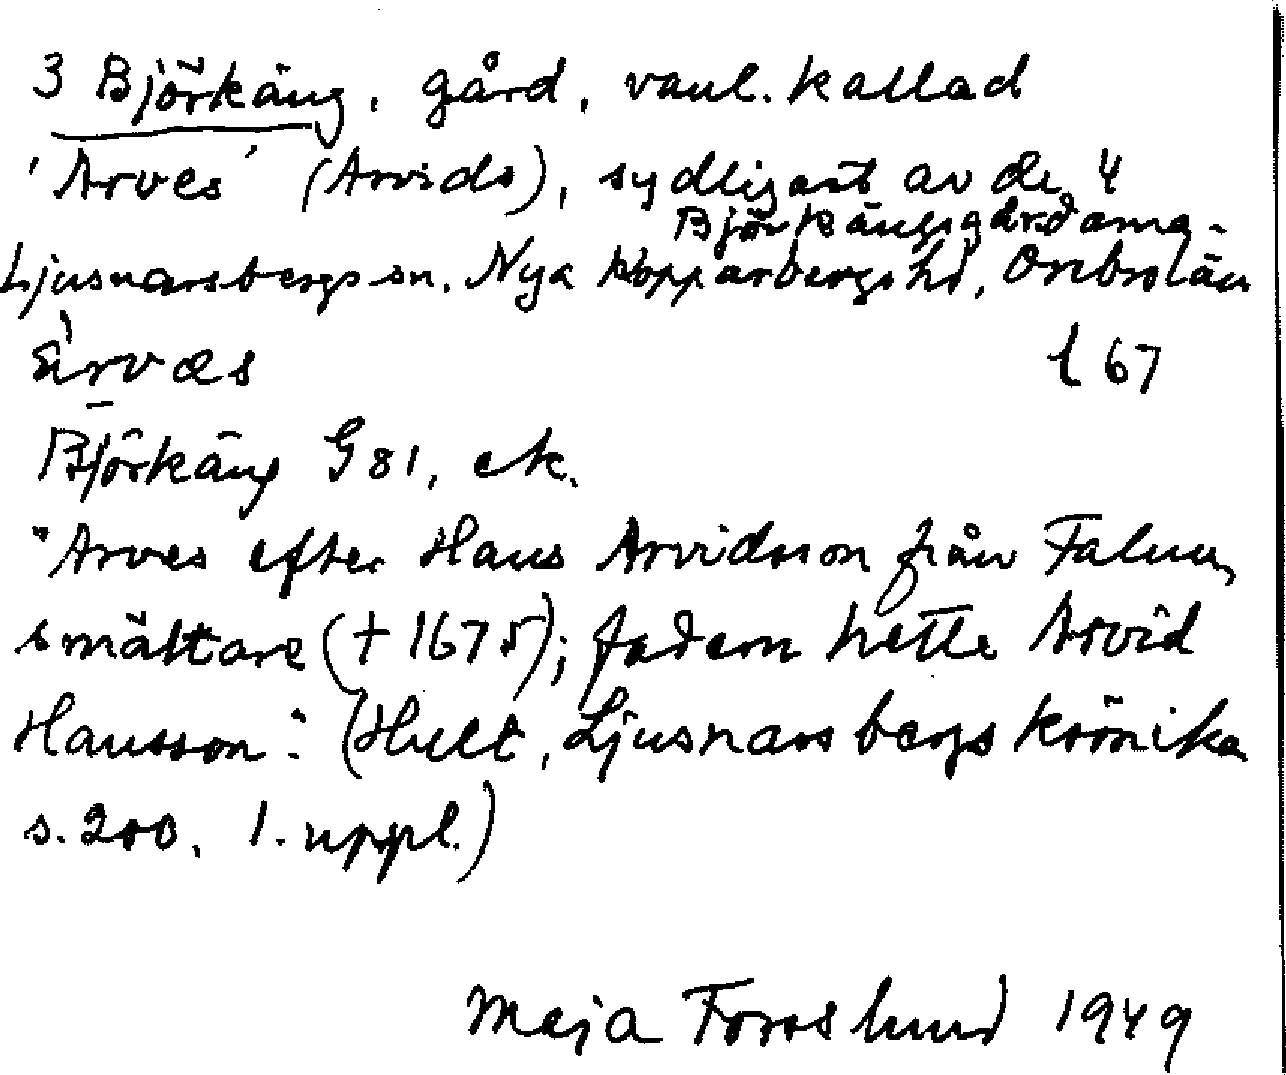 3 Björkäng, gård, vanl. kallad
'Arves' (Arvids), sydligast av de 4
Björkängsgårdarna.
Ljusnarsbergs sn. Nya Kopparbergs hd, Örebro län
ärvæs
t 67
Björkäng G 81, ek.
"Arves efter Hans Arvidsson från Falun,
smältare († 1675); fadern hette Arvid
Hansson." (Hult, Ljusnarsbergs krönika
s. 200, 1. uppl.)
Maja Forsslund 1949